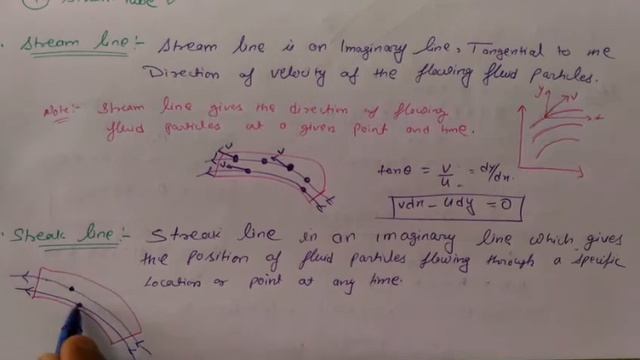 Stream line :- Stream line is an Imaginary line, Tangential to the
Direction of velocity of the flowing fluid particles.
Note:- Stream line gives the direction of flowing
fluid particles at a given point and time.
y
V
x
V
V
V
tanθ = v/u = dy/dx.
vdx - udy = 0
Streak line :- Streak line is an imaginary line which gives
the position of fluid particles flowing through a specific
Location or point at any time.